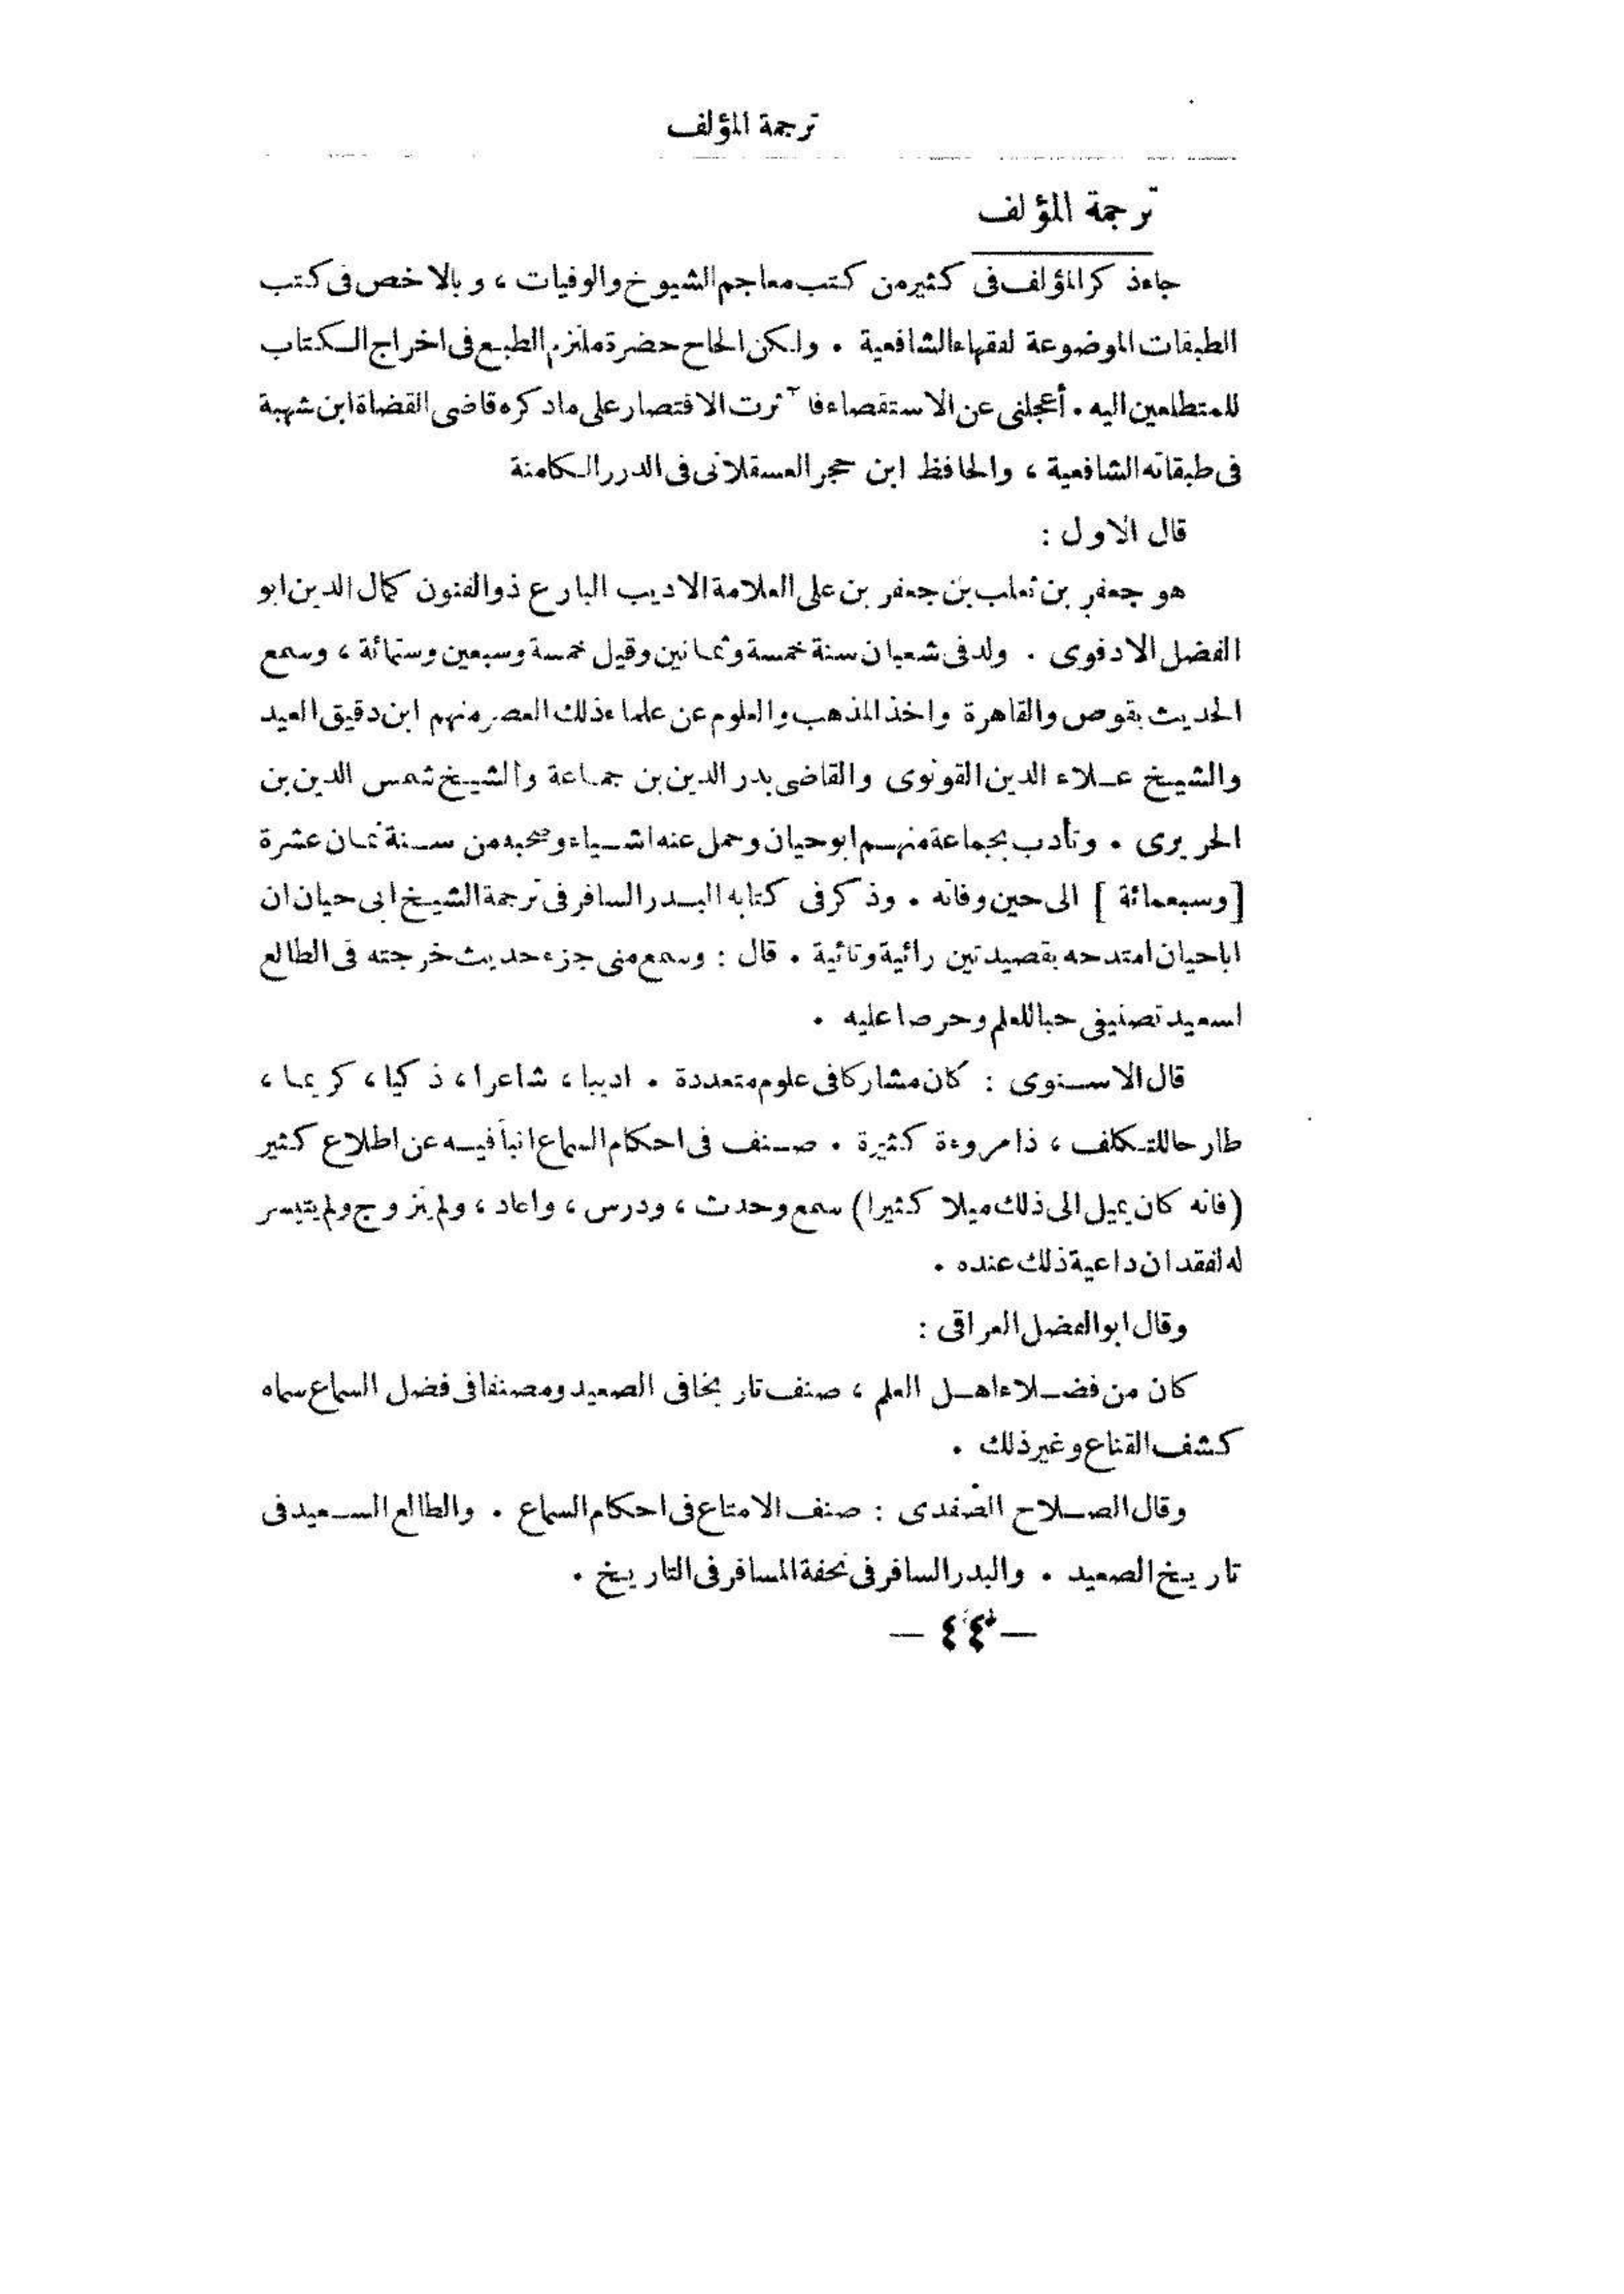 ترجمة المؤلف
ترجمة المؤلف
جاء ذكر المؤلف فى كثير من كتب معاجم الشيوخ والوفيات ، وبالاخص فى كتب
الطبقات الموضوعة لفقهاء الشافعية . ولكن الحاح حضرة ملتزم الطبع فى اخراج الكتاب
للمتطلعين اليه . أعجلنى عن الاستقصاء فآثرت الاقتصار على ماذكره قاضى القضاة ابن شهبة
فى طبقاته الشافعية ، والحافظ ابن حجر العسقلانى فى الدرر الكامنة
قال الاول :
هو جعفر بن ثعلب بن جعفر بن على العلامة الاديب البارع ذو الفنون كمال الدين ابو
الفضل الادفوى . ولد فى شعبان سنة خمسة وثمانين وقيل خمسة وسبعين وستمائة ، وسمع
الحديث بقوص والقاهرة واخذ المذهب والعلوم عن علماء ذلك العصر منهم ابن دقيق العيد
والشيخ علاء الدين القونوى والقاضى بدر الدين بن جماعة والشيخ شمس الدين بن
الحريرى . وتأدب بجماعة منهم ابو حيان وحمل عنه اشياء وصحبه من سنة ثمان عشرة
[ وسبعمائة ] الى حين وفاته . وذكر فى كتابه البدر السافر فى ترجمة الشيخ ابى حيان ان
اباحيان امتدحه بقصيدتين رائية وتائية . قال : وسمع منى جزء حديث خرجته فى الطالع
اسعيد تصنيفى حبا للعلم وحرصا عليه .
قال الاسنوى : كان مشاركا فى علوم متعددة . اديبا ، شاعرا ، ذكيا ، كريما ،
طارحا للتكلف ، ذا مروءة كثيرة . صنف فى احكام السماع انبأ فيه عن اطلاع كثير
(فانه كان يميل الى ذلك ميلا كثيرا) سمع وحدث ، ودرس ، واعاد ، ولم يتزوج ولم يتيسر
له لفقدان داعية ذلك عنده .
وقال ابو الفضل العراقى :
كان من فضلاء اهل العلم ، صنف تاريخا فى الصعيد ومصنفا فى فضل السماع سماه
كشف القناع وغير ذلك .
وقال الصلاح الصفدى : صنف الامتاع فى احكام السماع . والطالع السعيد فى
تاريخ الصعيد . والبدر السافر فى تحفة المسافر فى التاريخ .
— ٤٤ —